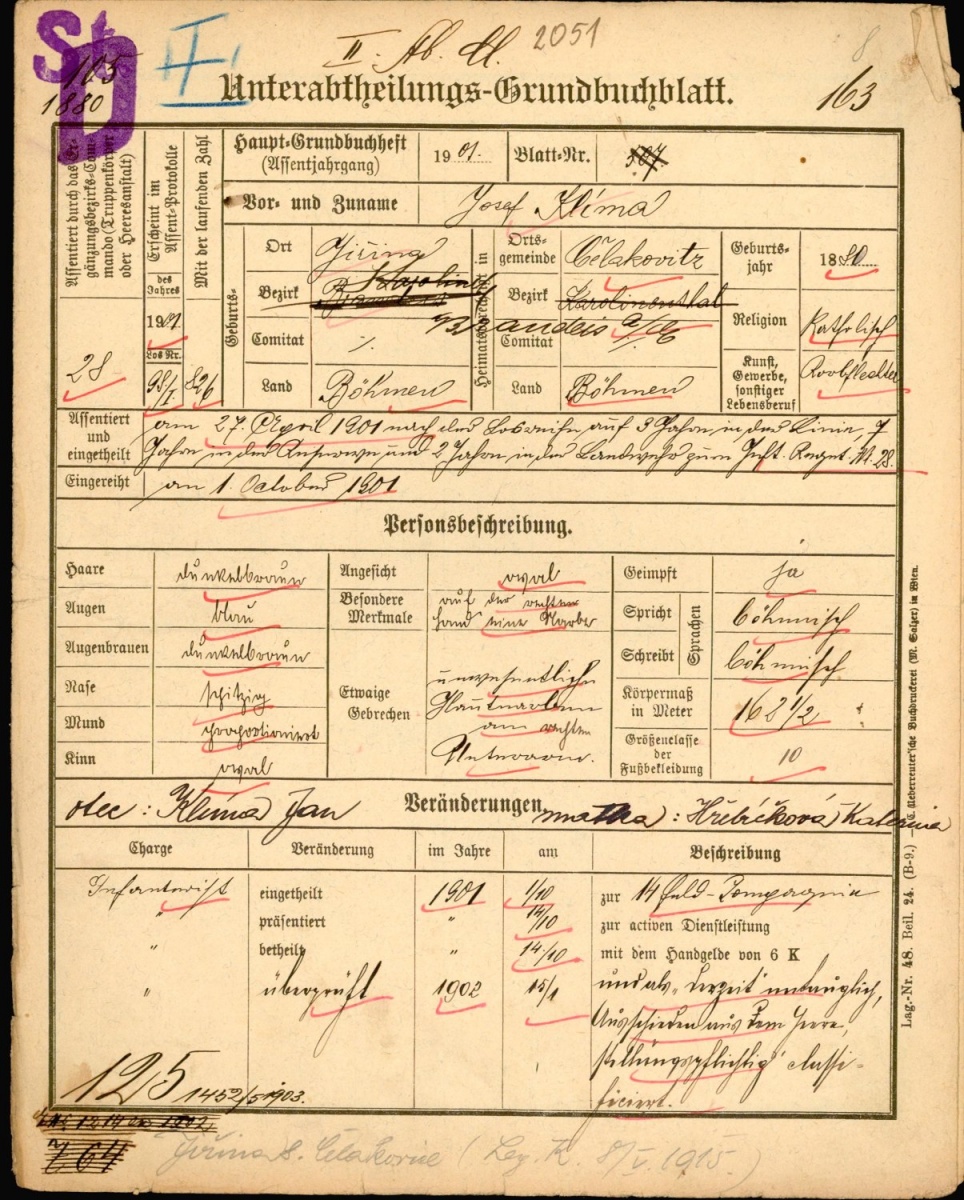 St
D
II. Ab. 2051
8
105
1880
I
Unterabtheilungs-Grundbuchblatt.
163
Assentiert durch das Ergänzungsbezirks-Commando (Truppenkörper oder Heeresanstalt)
28
Erscheint im Assent-Protokolle
des Jahres
1901
Los Nr.
98/I
Mit der laufenden Zahl
826
Haupt-Grundbuchheft
(Assentjahrgang)
1901.
Blatt-Nr.
Vor- und Zuname
Josef Klíma
Geburts-
Ort
Jiřina
Bezirk
Karolin
Comitat
%
Land
Böhmen
Heimatsberechtigt in
Ortsgemeinde
Čelakovitz
Bezirk
Karolinenthal
Brandeis a/E
Comitat
Land
Böhmen
Geburtsjahr
1880
Religion
Katholisch
Kunst, Gewerbe, sonstiger Lebensberuf
Korbflechter
Assentiert und eingetheilt
am 27. April 1901 nach der Losreihe auf 3 Jahre in der Linie, 7
Jahre in der Reserve und 2 Jahre in der Landwehr zum Inft. Regmt. Nr. 28.
Eingereiht
am 1. October 1901
Personsbeschreibung.
Haare
dunkelbraun
Augen
blau
Augenbrauen
dunkelbraun
Nase
spitzig
Mund
proportioniert
Kinn
oval
Angesicht
oval
Besondere Merkmale
auf der rechten
Hand eine Narbe
Etwaige Gebrechen
unwesentliche
Hautnarben
am rechten
Unterarm.
Geimpft
ja
Sprachen
Spricht
böhmisch
Schreibt
böhmisch
Körpermaß in Meter
162 1/2
Größenclasse der Fußbekleidung
10
otec: Klíma Jan
Veränderungen
matka: Hřebíčková Kateřina
Charge
Veränderung
im Jahre
am
Beschreibung
Infanterist
eingetheilt
1901
1/10
zur 14 Feld-Compagnie
"
präsentiert
"
14/10
zur activen Dienstleistung
"
betheilt
"
14/10
mit dem Handgelde von 6 K
"
überprüft
1902
15/1
und als "derzeit untauglich,
Ausscheiden aus dem Heere,
stellungspflichtig" classi-
ficiert.
125
1452/5 1903.
764
Jiřina b. Čelakovic (Leg. K. 8/V. 1915.)
Lag.-Nr. 48. Beil. 24. (B-9.) — C. Ueberreuter'sche Buchdruckerei (M. Salzer) in Wien.